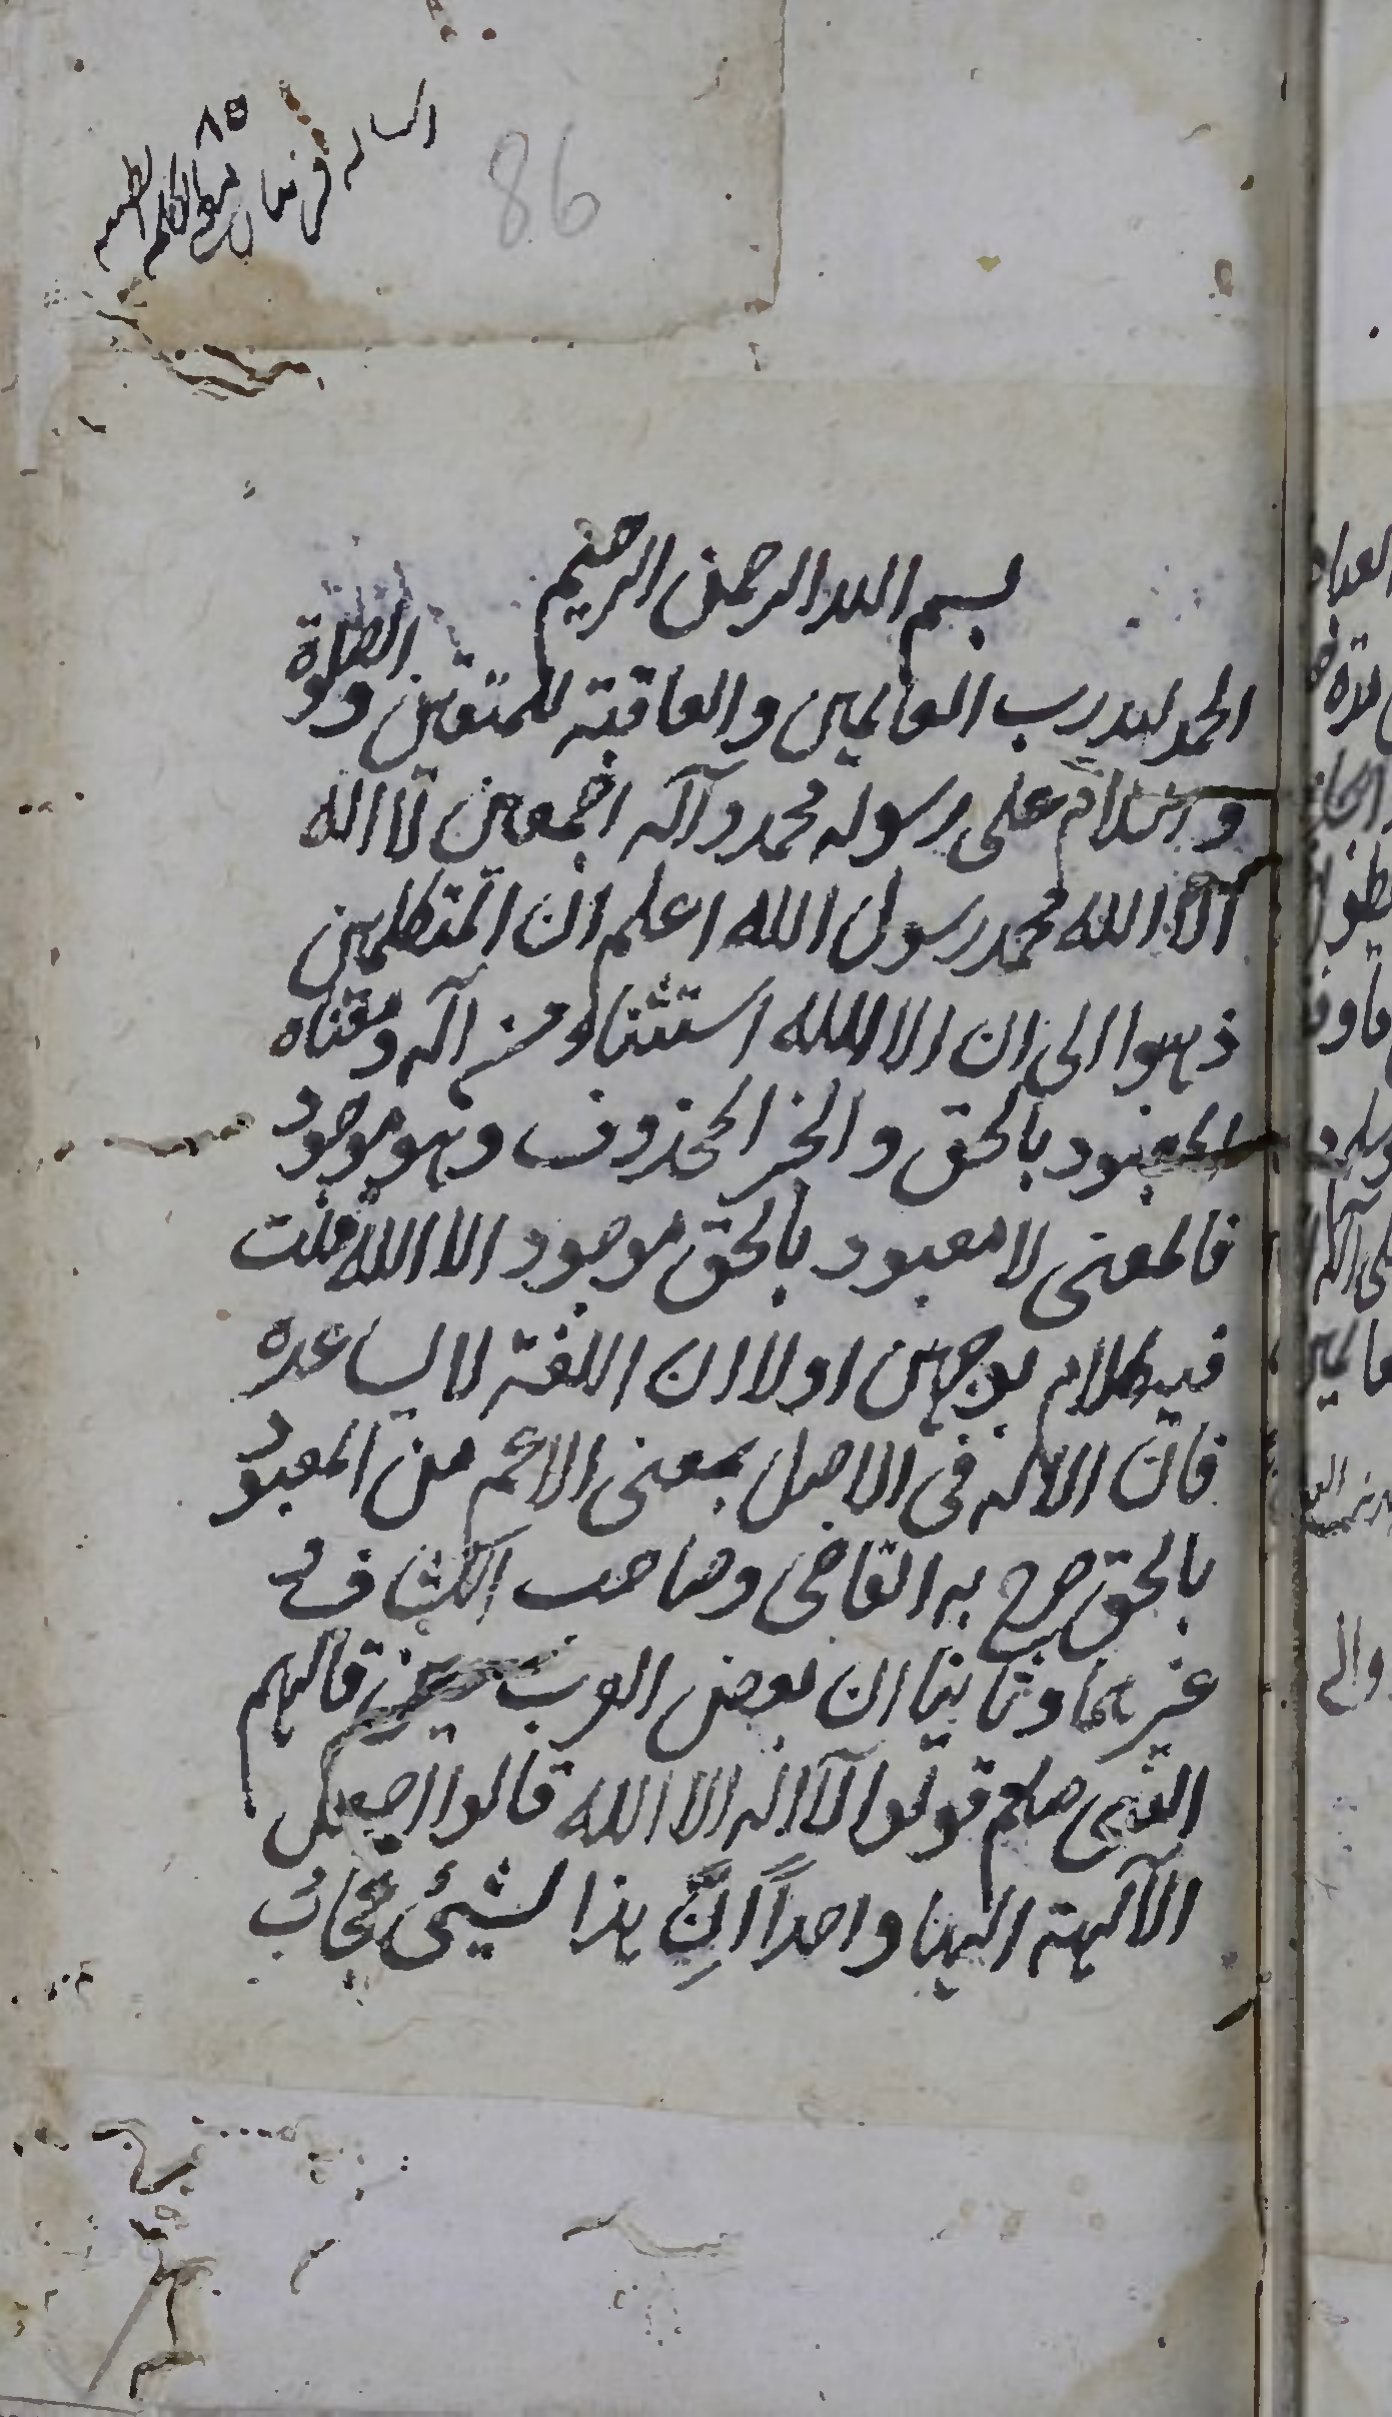 ٨٥
86
الرساله في بيان الكلم الطيب
بسم الله الرحمن الرحيم
الحمد لله رب العالمين والعاقبة للمتقين والصلوة
والسلام على رسوله محمد وآله اجمعين لا اله
الا الله محمد رسول الله اعلم ان المتكلمين
ذهبوا الى ان الا الله استثناء من آله ومعناه
المعبود بالحق والخبر المحذوف وهو موجود
فالمعنى لا معبود بالحق موجود الا الله قلت
فيه كلام بوجهين اولا ان اللغة لا يساعده
فان الاله في الاصل بمعنى الاعم من المعبود
بالحق صرح به القاضى وصاحب الكشاف و
غيرهما وثانيا ان بعض العرب حين قال لهم
النبى صلعم قولوا لا اله الا الله قالوا اجعل
الآلهة الها واحداً انّ هذا لشيئ عجابُ